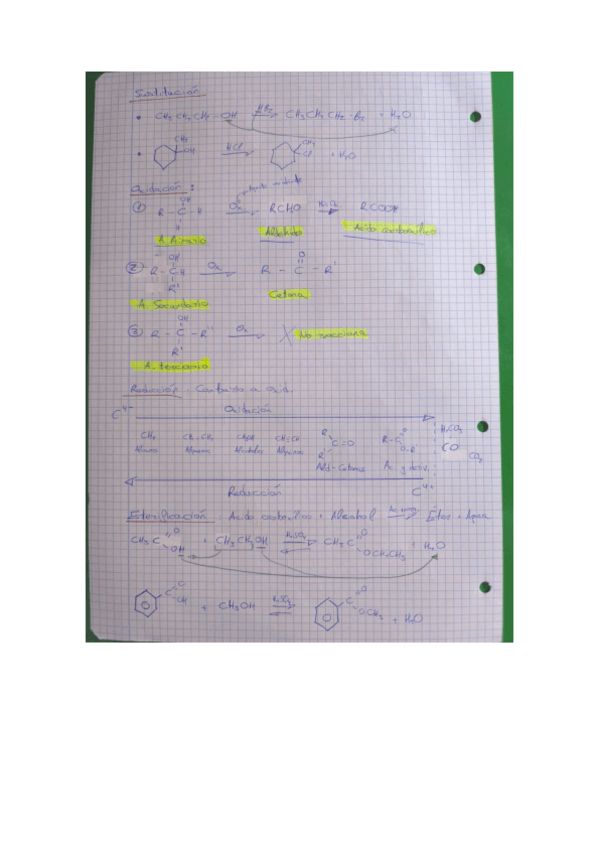 Sustitución
• CH3 CH2 CH2-OH HBr → CH3CH2CH2-Br + H2O
• CH3 OH HCl → CH3 Cl + H2O
Oxidación:
① R - C - H OH H Ox → RCHO → RCOOH
A. Primario Aldehido Ácido carboxílico
② R - C - H OH R' Ox → R - C - R' O
A. Secundario Cetona
③ R - C - R'' OH R' Ox → X No reacciona
A. terciario
Reducción. Contrario a oxid.
C4- Oxidación
CH4 CH2=CH2 CH3OH CH≡CH R C=O R' R-C O O-R' H2CO3 CO CO2
Alcano Alqueno Alcoholes Alquinos Ald-Cetonas Ac. y deriv.
Reducción C4+
Esterificación. Acido carboxílico + Alcohol → Éster + Agua
CH3 C O OH + CH3CH2OH H2SO4 ⇌ CH3 C O OCH2CH3 + H2O
C O OH + CH3OH H2SO4 ⇌ C O OCH3 + H2O